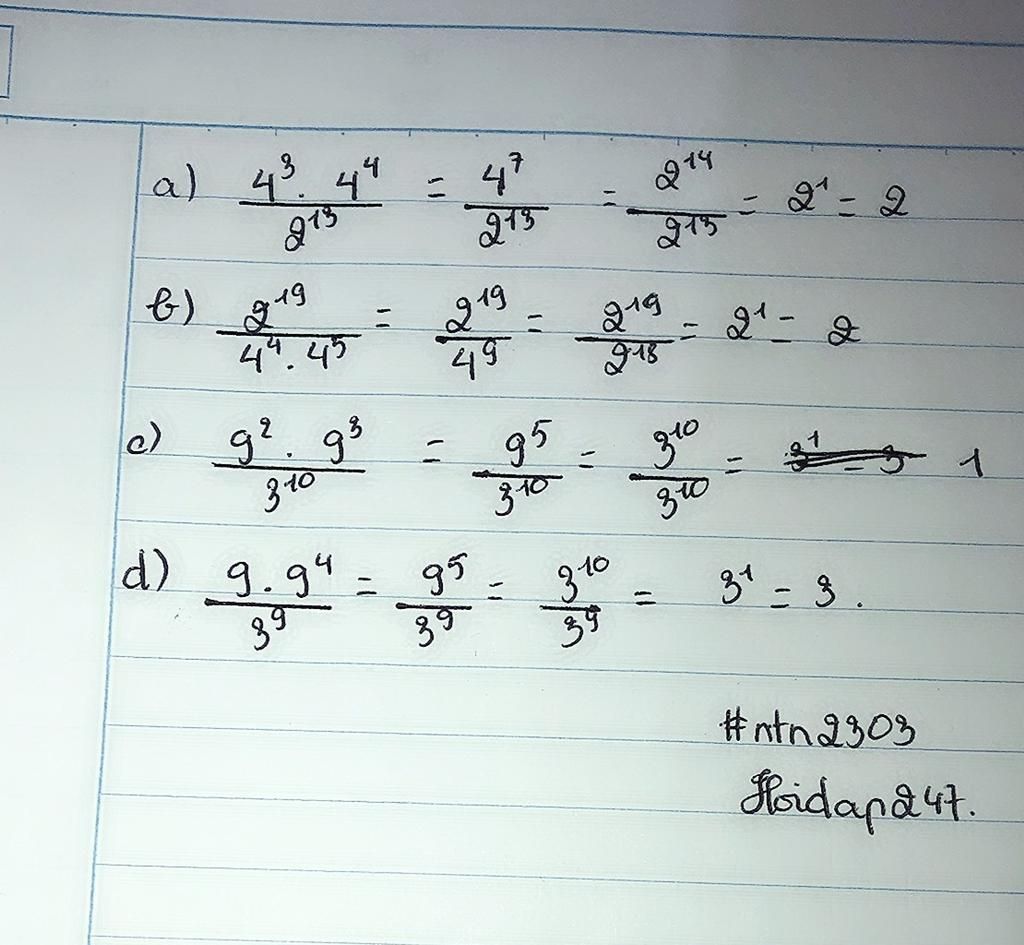 a) \frac{4^3 . 4^4}{2^{13}} = \frac{4^7}{2^{13}} = \frac{2^{14}}{2^{13}} = 2^1 = 2
b) \frac{2^{19}}{4^4 . 4^5} = \frac{2^{19}}{4^9} = \frac{2^{19}}{2^{18}} = 2^1 = 2
c) \frac{9^2 . 9^3}{3^{10}} = \frac{9^5}{3^{10}} = \frac{3^{10}}{3^{10}} = ~~3^1 = 3~~ 1
d) \frac{9 . 9^4}{3^9} = \frac{9^5}{3^9} = \frac{3^{10}}{3^9} = 3^1 = 3.
#ntn2303
Hoidap247.